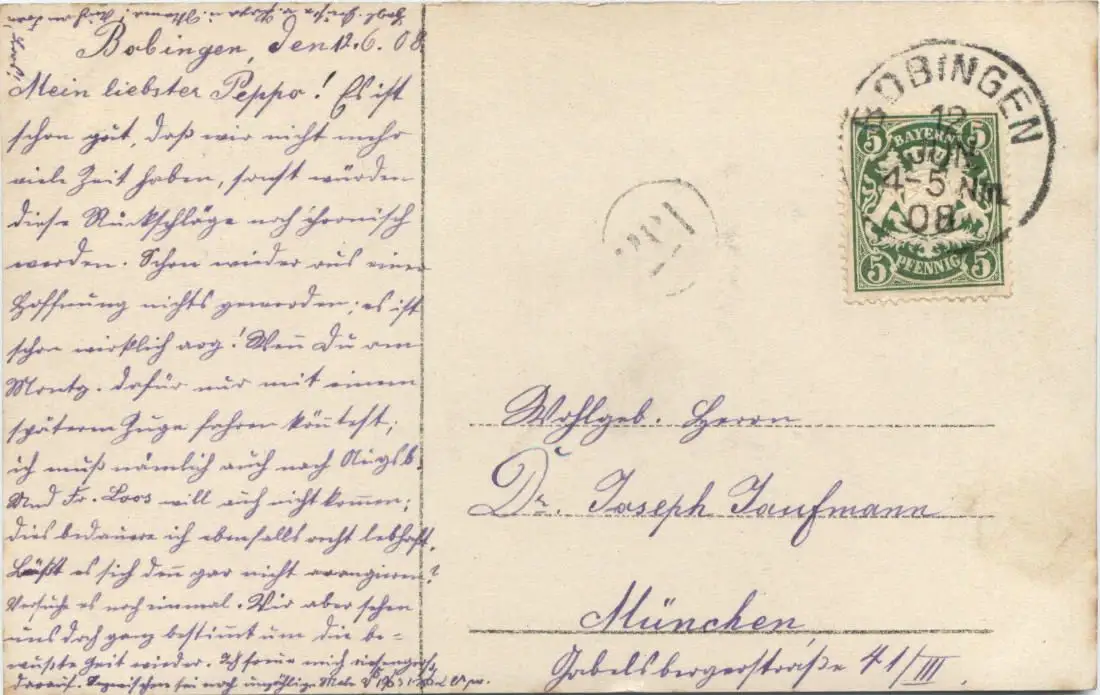 Bobingen, den 12.6.08
Mein liebster Peppo! Es ist
schon gut, daß wir nicht mehr
viele Zeit haben, sonst würden
diese Rückschläge noch chronisch
werden. Schon wieder aus einer
Hoffnung nichts geworden; es ist
schon wirklich arg! Wenn Du am
Montg. dafür nur mit einem
späterem Zuge fahren könntest;
ich muß nämlich auch nach Augsb.
Und Fr. Loos will auch nicht kommen;
dies bedauere ich ebenfalls recht lebhaft.
Läßt es sich denn gar nicht arangieren?
Versuche es noch einmal. Wir aber sehen
uns doch ganz bestimmt um die be-
wußte Zeit wieder. Ich freue mich riesengroß
darauf. Inzwischen sei noch unzählige Male
BOBINGEN
12
JUN
4-5 Nm.
08
5 BAYERN 5
5 PFENNIG 5
Wohlgeb. Herrn
Dr. Joseph Taufmann
München,
Gabelsbergerstraße 41/III